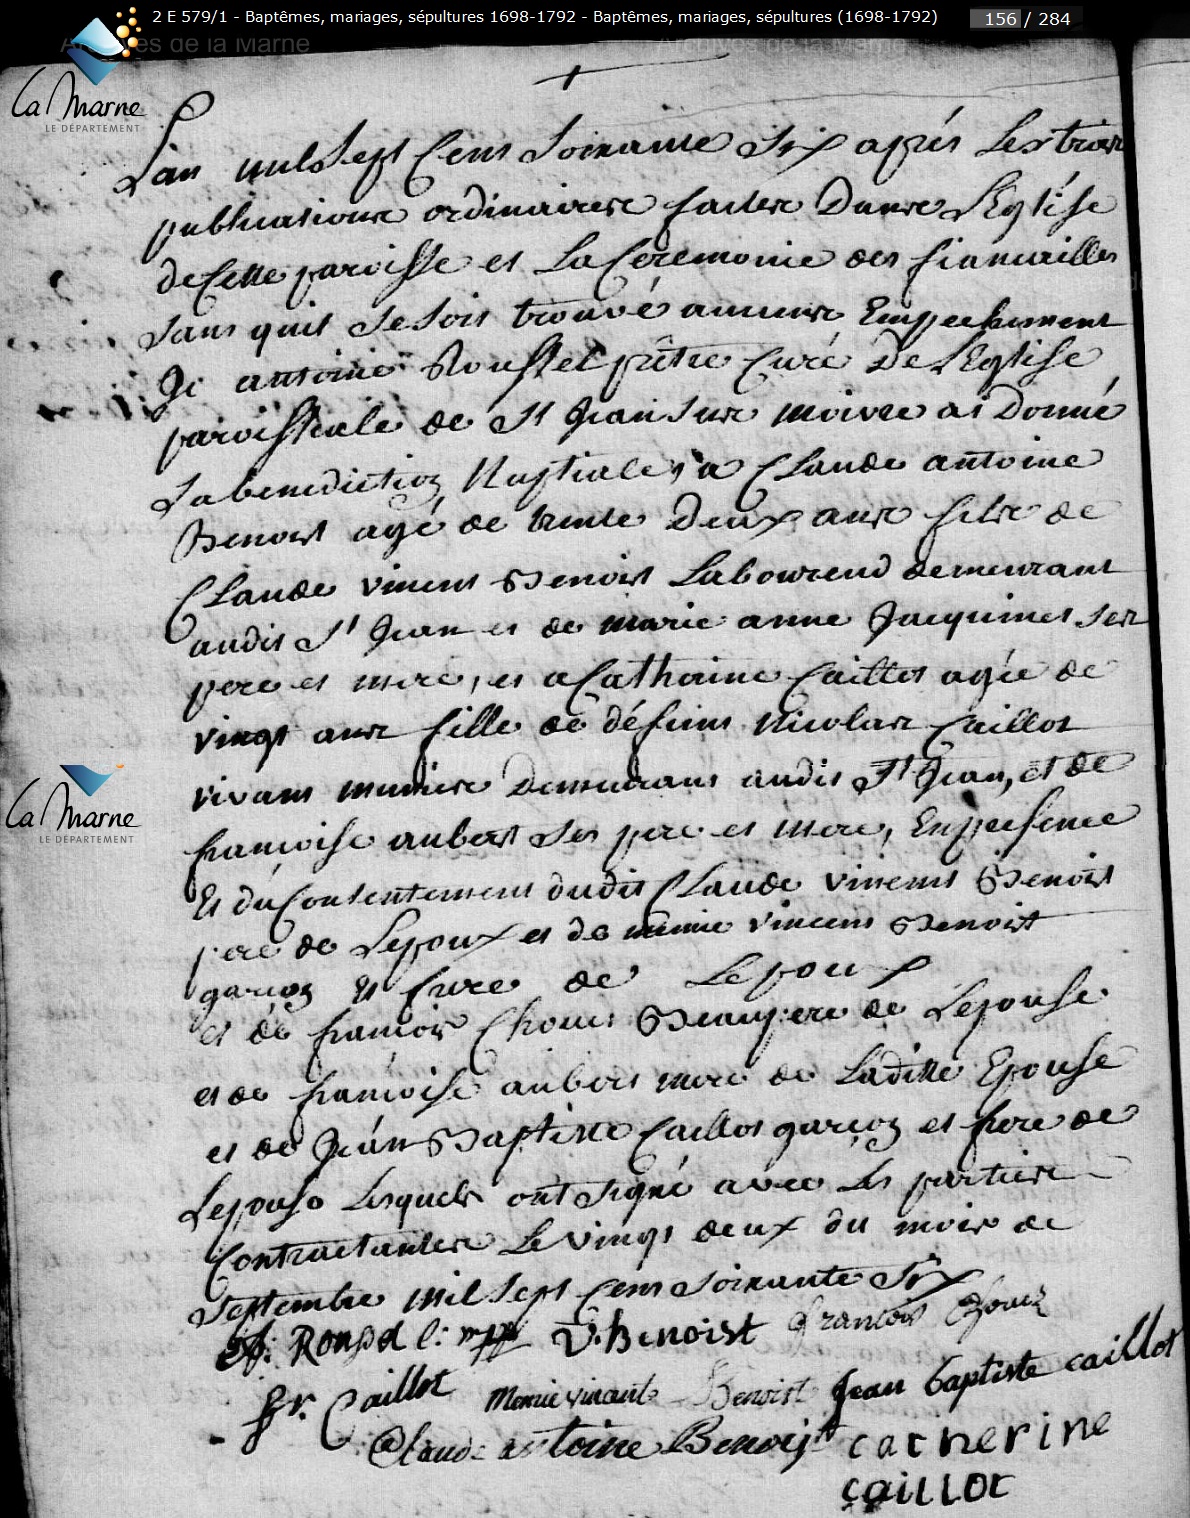 2 E 579/1 - Baptêmes, mariages, sépultures 1698-1792 - Baptêmes, mariages, sépultures (1698-1792) 156 / 284
Archives de la Marne
La Marne
LE DÉPARTEMENT
L'an mil Sept Cens Soixante Six après Les trois
publications ordinaires faites Dans L'Eglise
de Cette paroisse et La Ceremonie des fiançailles
Sans quil Se Soit trouvé aucuns Empechement
Je antoine Roussel prêtre Curé De L'Eglise
paroissiale de St Jean Sur moivre ai Donné
La benediction Nuptiale, a Claude antoine
Benoist agé de trente Deux ans fils de
Claude vincent Benoist Laboureur demeurant
audit St Jean et de marie anne Jacquinet Ses
pere et mere, et a Catherine Caillot agée de
vingt ans fille de défunt Nicolas Caillot
vivant Demeurant audit St Jean, et de
francoise aubert Ses pere et mere, En presence
Et du Consentement dudit Claude vincent Benoist
pere de Lepoux et de memie vincent Benoist
garcon Et frere de Lepoux
et de francois Beaupere de Lepouse
et de francoise aubert mere de Laditte Epouse
et de Jean Baptiste Caillot garcon et frere de
Lepouse Lesquels ont Signé avec Les parties
Contractantes Le vingt deux du mois de
Septembre mil Sept Cens Soixante Six
V. Benoist francois
Caillot Memie vincent Benoist Jean baptiste caillot
Claude antoine Benoist catherine
caillot
La Marne
LE DÉPARTEMENT